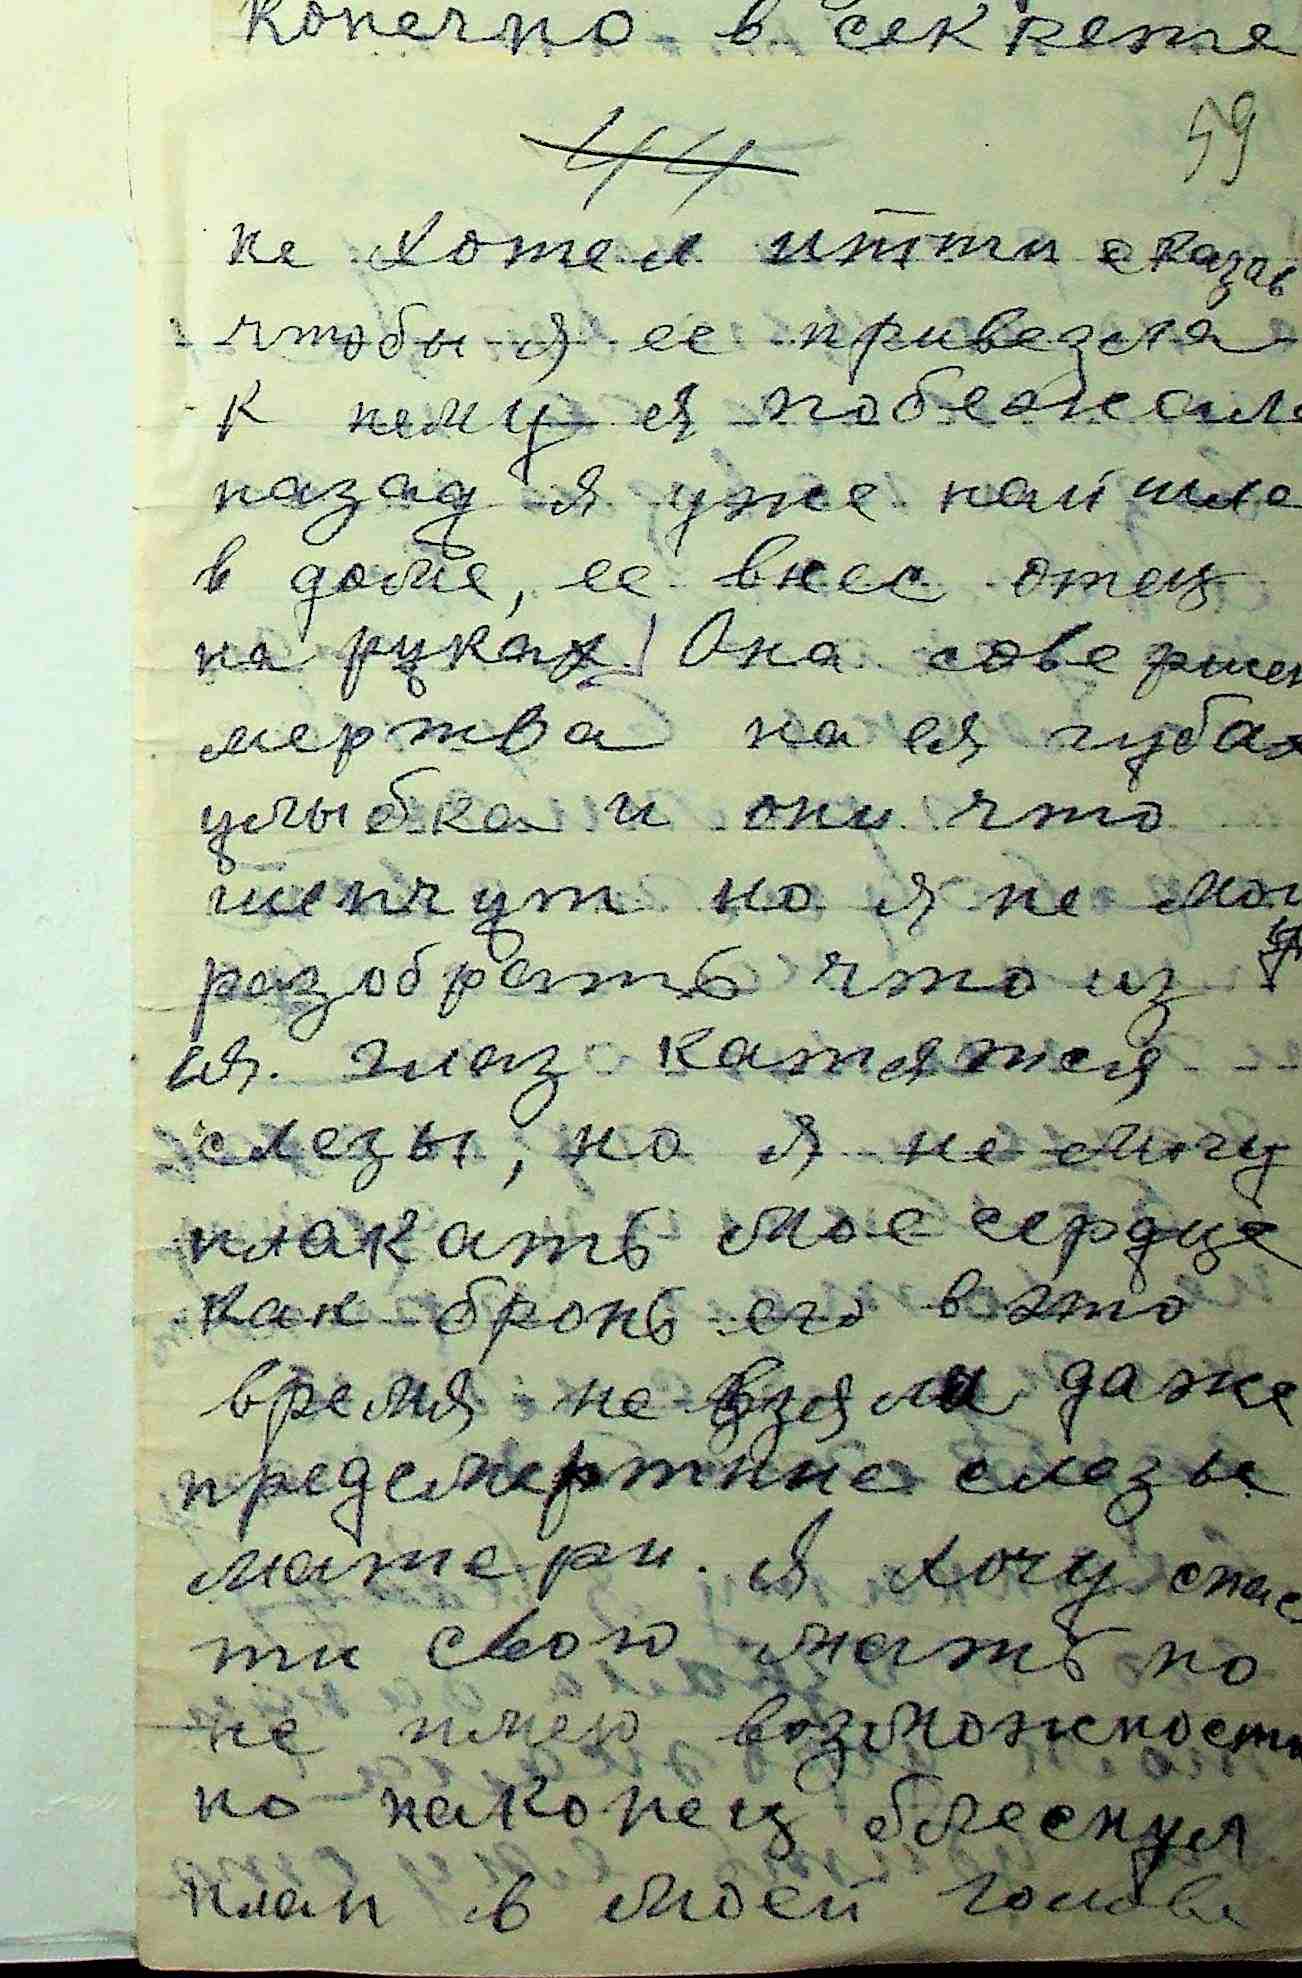 Конечно в секрете
59
44
не хотел итти сказав
чтобы я ее привезла
к нему я побежала
назад я уже найшла
в доме, ее внес отец
на руках! Она совершен
мертва на ея губах
улыбка и они что
шепчут но я не могу
разобрать что из
ея глаз катятся
слезы, но я не могу
плакать мое сердце
как бронь его в это
время не взяли даже
предсмертние слезы
матери. Я хочу спас
ти свою мать но
не имею возможности
но наконец блеснул
план в моей голове